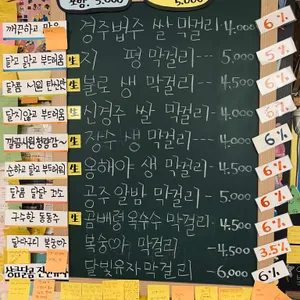 5,000
5,000
깨끗하고 맑은 경주법주 쌀 막걸리 - 4,000 6%
달지 않고 부드러움 生 지 평 막걸리 --- 5,000 5%
달콤 시원 탄산만 生 불로 생 막걸리 - 4,500 6%
달지않고 부드러움 生 신경주 쌀 막걸리 - 4,000 6%
生 장수 생 막걸리 - 4,500 6%
순하고 달고 부드러워 生 올해야 생 막걸리 - 4,500 6%
달콤 달달 고소 공주 알밤 막걸리 - 5,000 6%
구수한 동동주 곰배령 옥수수 막걸리 - 4,500 6%
복숭아 막걸리 - 4,500 3.5%
달빛유자 막걸리 - 6,000 6%